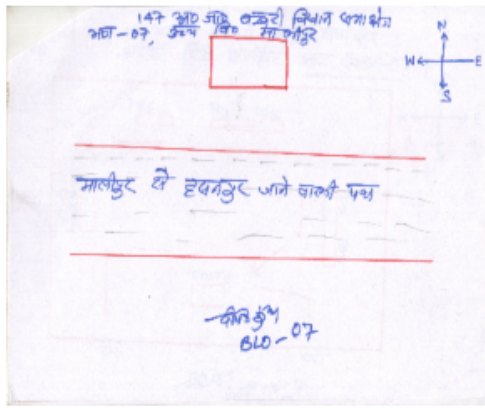 147 अ०जा० बखरी विधान सभा क्षेत्र
भाग-07, वि० मालीपुर
N
W E
S
मालीपुर से जाने वाली पथ
BLO-07